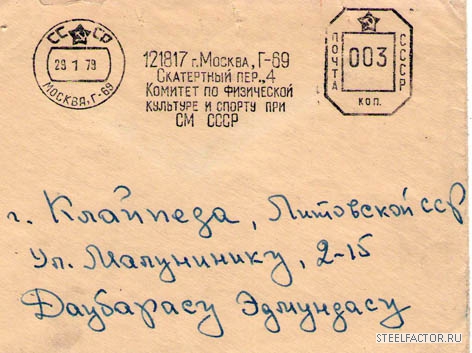 СС СР
29 1 79
МОСКВА, Г-69
121817 г. МОСКВА, Г-69
СКАТЕРТНЫЙ ПЕР., 4
КОМИТЕТ ПО ФИЗИЧЕСКОЙ
КУЛЬТУРЕ И СПОРТУ ПРИ
СМ СССР
ПОЧТА
003
СССР
КОП.
г. Клайпеда, Литовской сср
Ул. Малунинику, 2-15
Даубарасу Эдмундасу
STEELFACTOR.RU